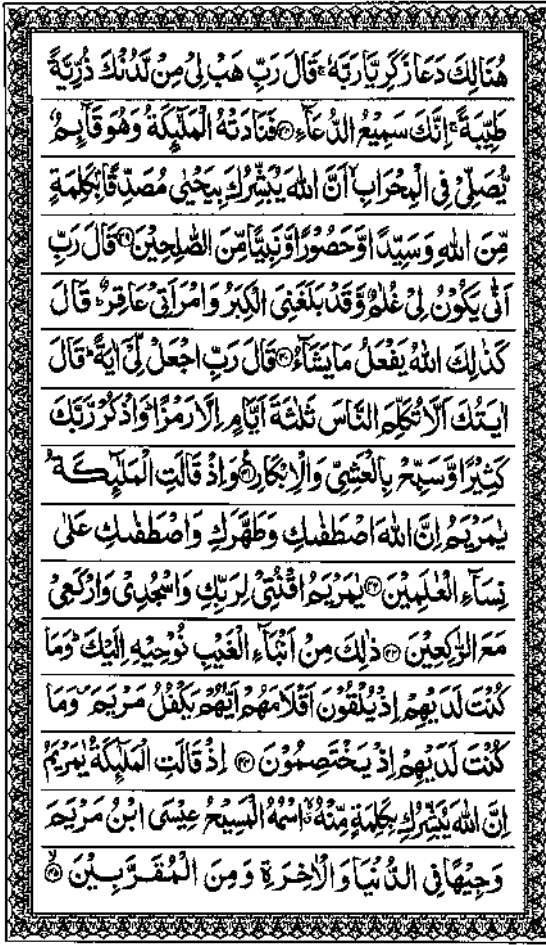 هُنَالِكَ دَعَا زَكَرِيَّا رَبَّهٗ ۚ قَالَ رَبِّ هَبْ لِيْ مِنْ لَّدُنْكَ ذُرِّيَّةً
طَيِّبَةً ۚ اِنَّكَ سَمِيْعُ الدُّعَآءِ ۝۳۸ فَنَادَتْهُ الْمَلٰٓئِكَةُ وَهُوَ قَآئِمٌ
يُّصَلِّيْ فِى الْمِحْرَابِ ۙ اَنَّ اللهَ يُبَشِّرُكَ بِيَحْيٰى مُصَدِّقًۢا بِكَلِمَةٍ
مِّنَ اللهِ وَسَيِّدًا وَّحَصُوْرًا وَّنَبِيًّا مِّنَ الصّٰلِحِيْنَ ۝۳۹ قَالَ رَبِّ
اَنّٰى يَكُوْنُ لِيْ غُلٰمٌ وَّقَدْ بَلَغَنِيَ الْكِبَرُ وَامْرَاَتِيْ عَاقِرٌ ؕ قَالَ
كَذٰلِكَ اللهُ يَفْعَلُ مَا يَشَآءُ ۝۴۰ قَالَ رَبِّ اجْعَلْ لِّيْٓ اٰيَةً ؕ قَالَ
اٰيَتُكَ اَلَّا تُكَلِّمَ النَّاسَ ثَلٰثَةَ اَيَّامٍ اِلَّا رَمْزًا ؕ وَاذْكُرْ رَّبَّكَ
كَثِيْرًا وَّسَبِّحْ بِالْعَشِيِّ وَالْاِبْكَارِ ۝۴۱ وَاِذْ قَالَتِ الْمَلٰٓئِكَةُ
يٰمَرْيَمُ اِنَّ اللهَ اصْطَفٰىكِ وَطَهَّرَكِ وَاصْطَفٰىكِ عَلٰى
نِسَآءِ الْعٰلَمِيْنَ ۝۴۲ يٰمَرْيَمُ اقْنُتِيْ لِرَبِّكِ وَاسْجُدِيْ وَارْكَعِيْ
مَعَ الرّٰكِعِيْنَ ۝۴۳ ذٰلِكَ مِنْ اَنْۢبَآءِ الْغَيْبِ نُوْحِيْهِ اِلَيْكَ ؕ وَمَا
كُنْتَ لَدَيْهِمْ اِذْ يُلْقُوْنَ اَقْلَامَهُمْ اَيُّهُمْ يَكْفُلُ مَرْيَمَ ۪ وَمَا
كُنْتَ لَدَيْهِمْ اِذْ يَخْتَصِمُوْنَ ۝۴۴ اِذْ قَالَتِ الْمَلٰٓئِكَةُ يٰمَرْيَمُ
اِنَّ اللهَ يُبَشِّرُكِ بِكَلِمَةٍ مِّنْهُ ۖ اسْمُهُ الْمَسِيْحُ عِيْسَى ابْنُ مَرْيَمَ
وَجِيْهًا فِى الدُّنْيَا وَالْاٰخِرَةِ وَمِنَ الْمُقَرَّبِيْنَ ۙ۝۴۵